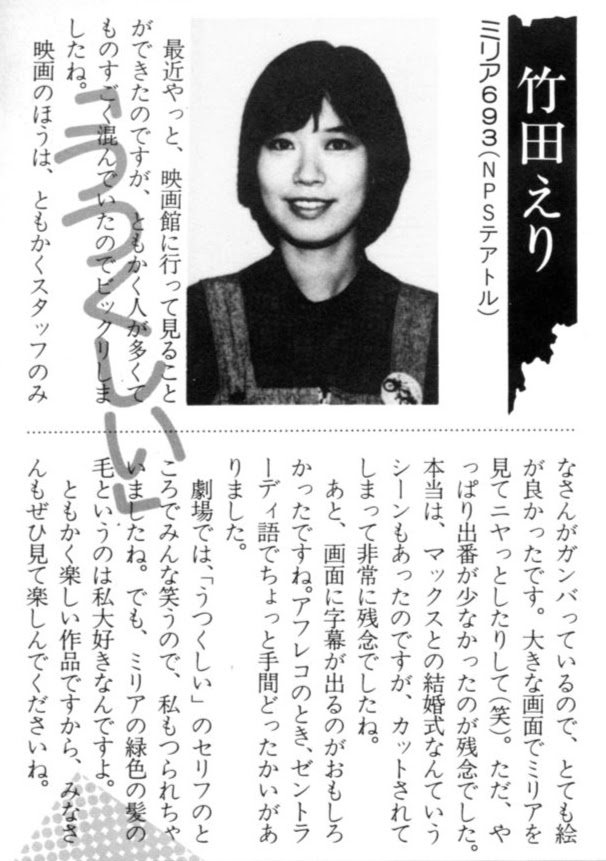 竹田えり
ミリア693(NPSテアトル)
最近やっと、映画館に行って見ること
ができたのですが、ともかく人が多くて
ものすごく混んでいたのでビックリしま
したね。
映画のほうは、ともかくスタッフのみ
「うつくしい」
なさんがガンバっているので、とても絵
が良かったです。大きな画面でミリアを
見てニヤっとしたりして(笑)。ただ、や
っぱり出番が少なかったのが残念でした。
本当は、マックスとの結婚式なんていう
シーンもあったのですが、カットされて
しまって非常に残念でしたね。
あと、画面に字幕が出るのがおもしろ
かったですね。アフレコのとき、ゼントラ
ーディ語でちょっと手間どったかいがあ
りました。
劇場では、「うつくしい」のセリフのと
ころでみんな笑うので、私もつられちゃ
いましたね。でも、ミリアの緑色の髪の
毛というのは私大好きなんですよ。
ともかく楽しい作品ですから、みなさ
んもぜひ見て楽しんでくださいね。